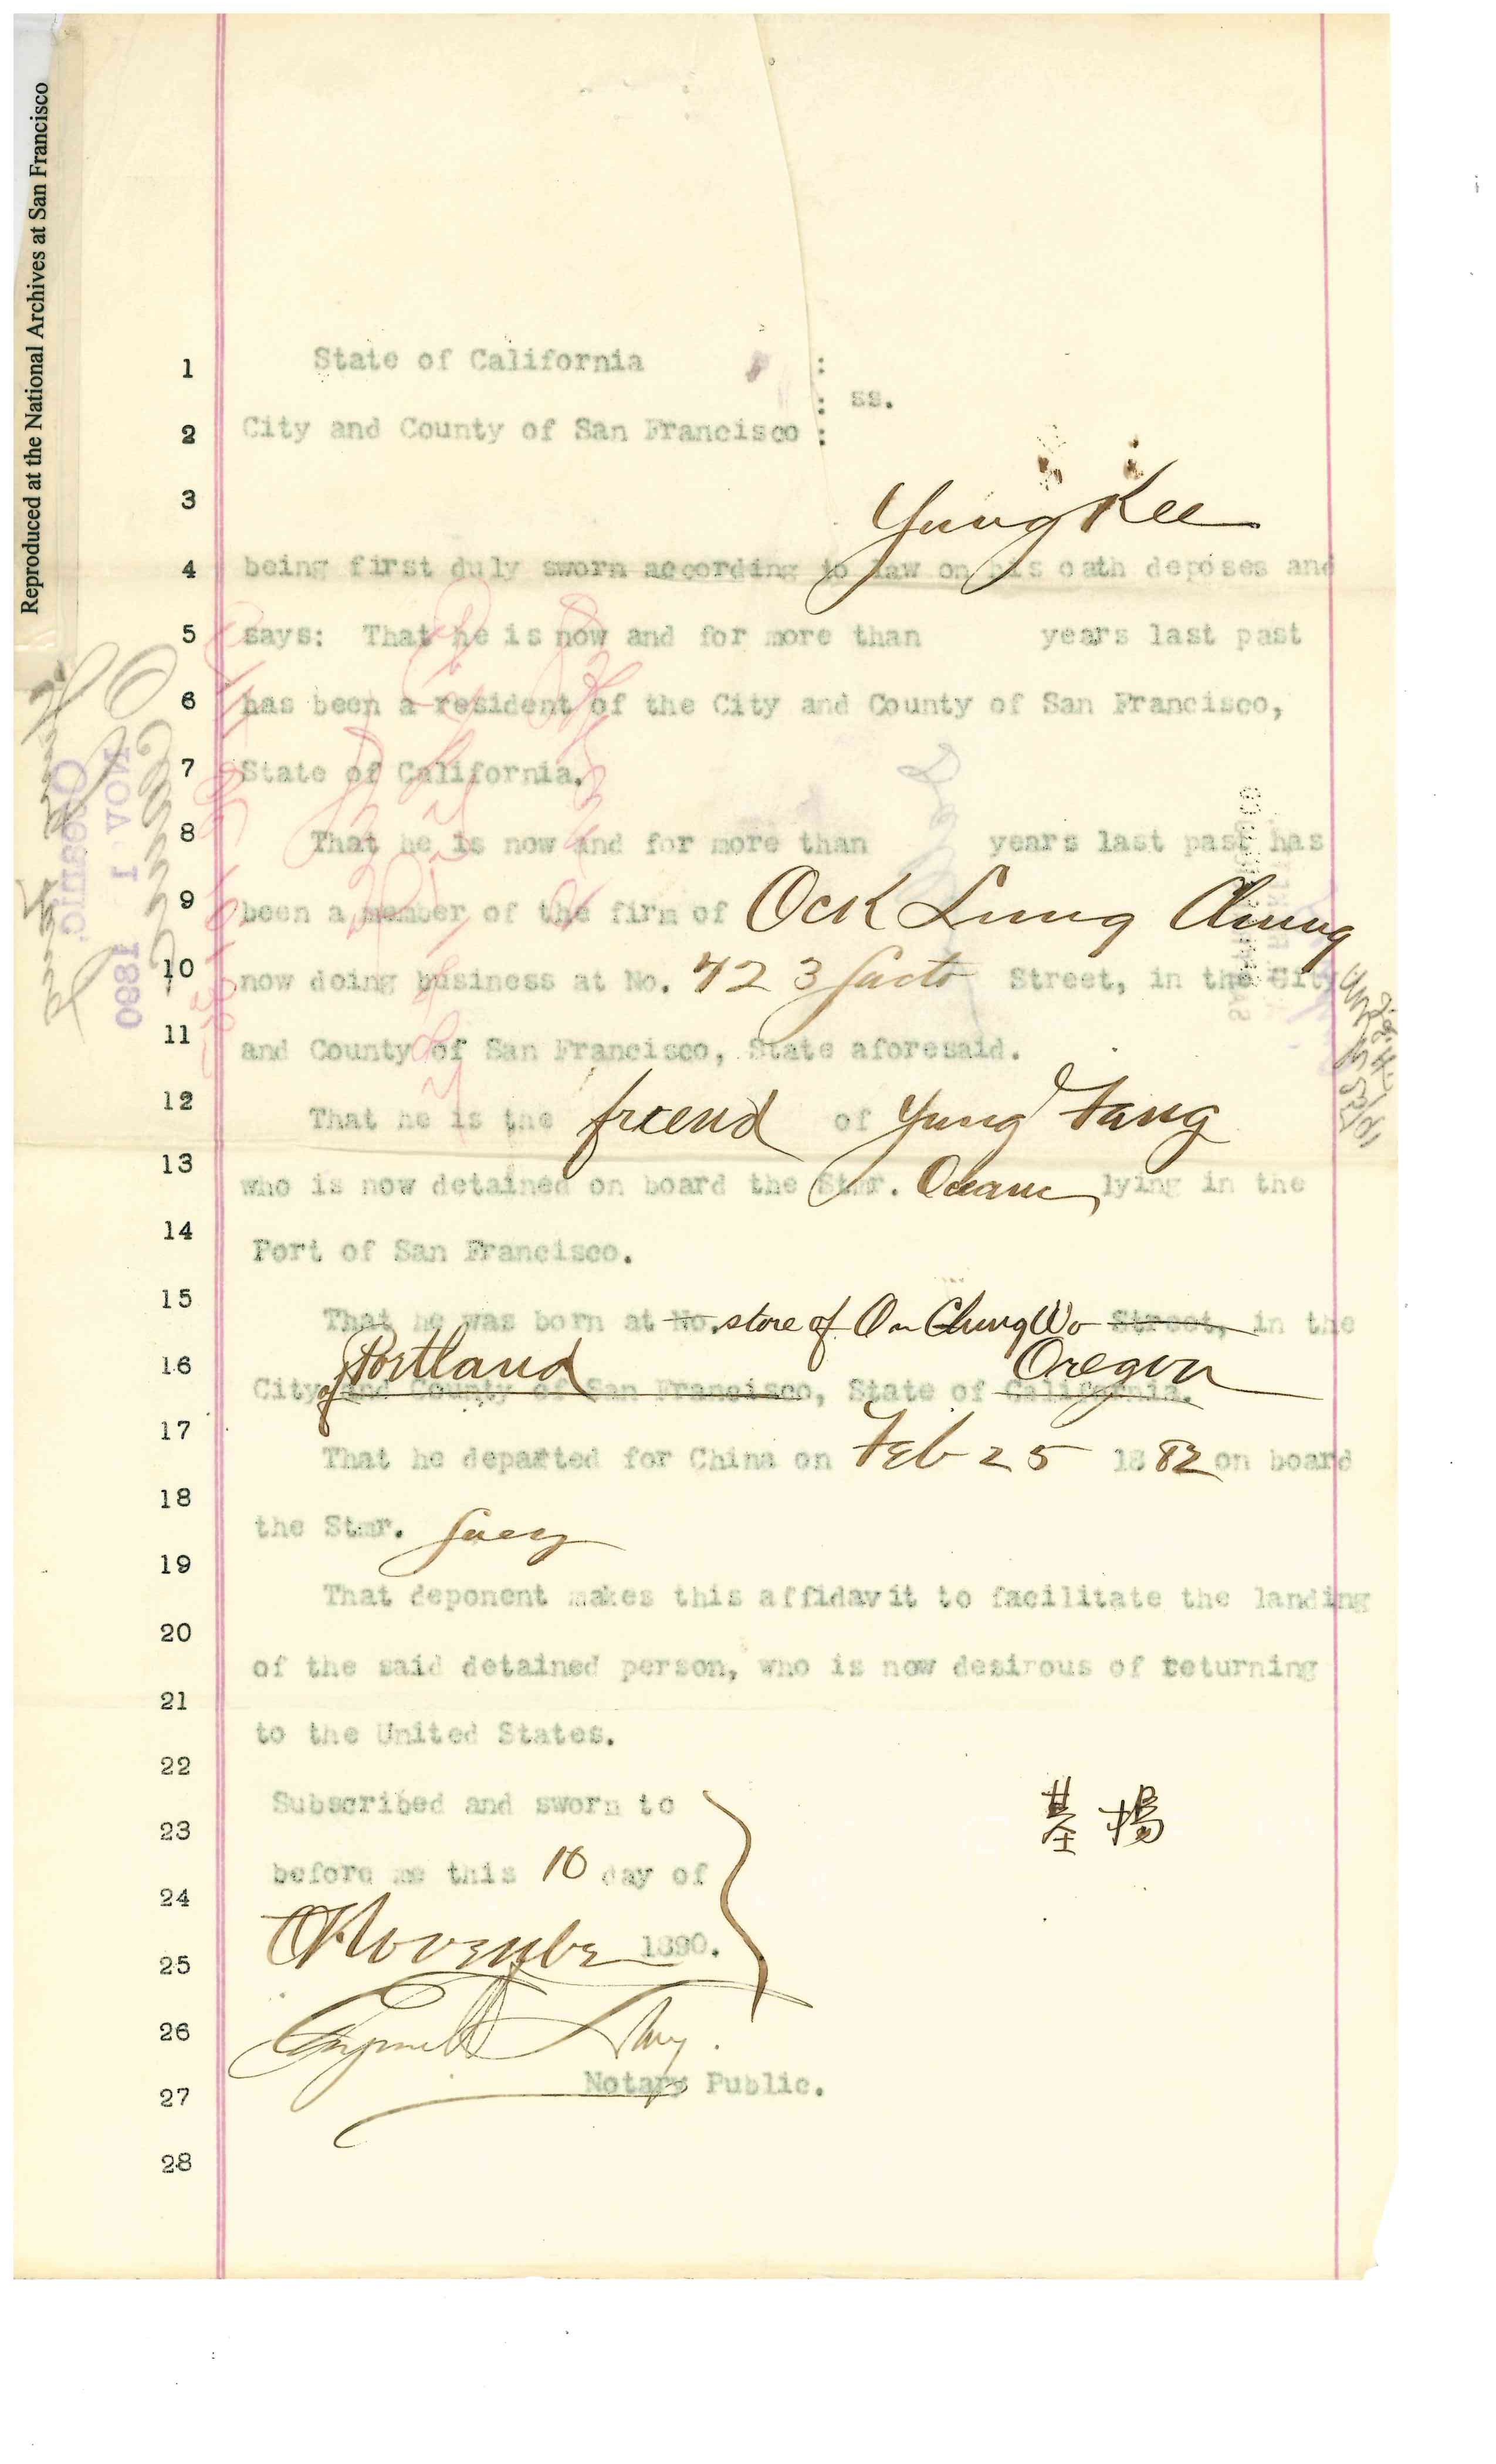 Reproduced at the National Archives at San Francisco
1 State of California :
: ss.
2 City and County of San Francisco :
3 Yung Kee
4 being first duly sworn according to law on his oath deposes and
5 says: That he is now and for more than years last past
6 has been a resident of the City and County of San Francisco,
7 State of California.
8 That he is now and for more than years last past has
9 been a member of the firm of Ock Lung Chung
10 now doing business at No. 723 Sacto Street, in the City
11 and County of San Francisco, State aforesaid.
12 That he is the friend of Yung Fang
13 who is now detained on board the Stmr. Oceanic lying in the
14 Port of San Francisco.
15 That he was born at No. store of On Chung Wo Street, in the
Portland Oregon
16 City of and County of San Francisco, State of California.
17 That he departed for China on Feb 25 1882 on board
18 the Stmr.
19 That deponent makes this affidavit to facilitate the landing
20 of the said detained person, who is now desirous of returning
21 to the United States.
22 Subscribed and sworn to
23 before me this 10 day of
24 November 1890.
25
26
Notary Public.
27
28
Oceanic.
NOV 1 1890